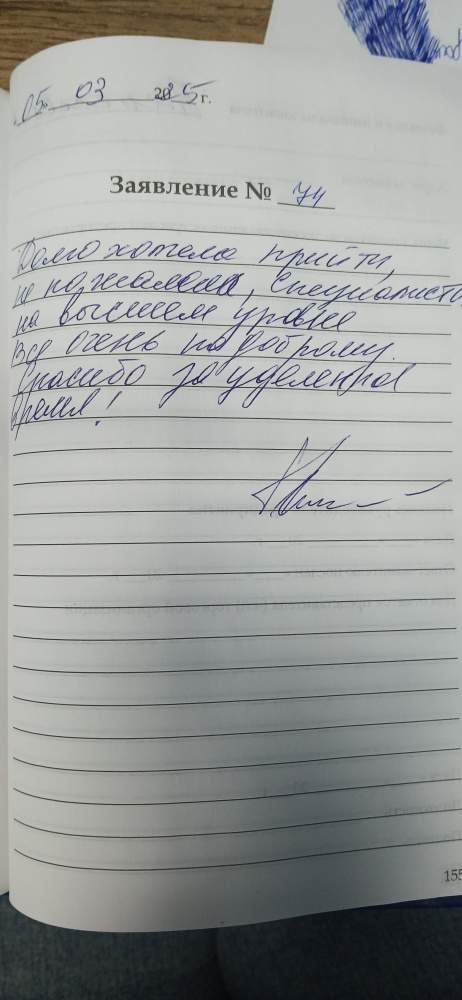 «05» 03 2025 г.
Заявление № 74
Долго хотела прийти,
не пожалела, специалисты
на высшем уровне
Все очень по доброму.
Спасибо за уделенное
время!
155